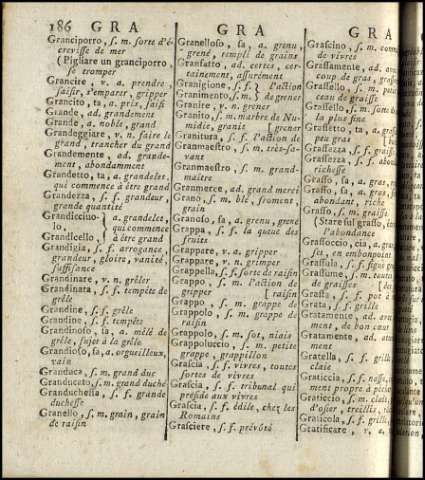 186 GRA GRA GRA
Granciporro, ſ. m. ſorte d'é-
creviſſe de mer
(Pigliare un granciporro,
ſe tromper
Grancire, v. a. prendre,
ſaiſir, s'emparer, gripper
Grancito, ta, a. pris, ſaiſi
Grande, ad. grandement
Grande, a. noble, grand
Grandeggiare, v. n. faire le
grand, trancher du grand
Grandemente, ad. grande-
ment, abondamment
Grandetto, ta, a. grandelet,
qui commence à être grand
Grandezza, ſ. f. grandeur,
grande quantité
Grandicciuo-
lo,
Grandicello,
} a. grandelet,
qui commence
à être grand
Grandigia, ſ. f. arrogance,
grandeur, gloire, vanité,
ſuffiſance
Grandinare, v. n. grêler
Grandinata, ſ. f. tempête de
grêle
Grandine, ſ. f. grêle
Grandine, ſ. f. tempête
Grandinoſo, ſa, a. mêlé de
grêle, ſujet à la grêle
Grandioſo, ſa, a. orgueilleux,
vain
Granduca, ſ. m. grand duc
Granducato, ſ. m. grand duché
Granducheſſa, ſ. f. grande
ducheſſe
Granello, ſ. m. grain, grain
de raiſin
Granelloſo, ſa, a. grenu,
grené, rempli de grains
Granfatto, ad. certes, cer-
tainement, aſſurément
Granigione, ſ. f. } l'action
Granimento, ſ. m. } de grener
Granire, v. n. grener
Granito, ſ. m. marbre de Nu-
midie, granit [grener
Granitura, ſ. f. l'action de
Granmaeſtro, ſ. m. très-ſa-
vant
Granmaeſtro, ſ. m. grand-
maître
Granmerce, ad. grand merci
Grano, ſ. m. blé, froment,
grain
Granoſo, ſa, a. grenu, grené
Grappa, ſ. f. la queue des
fruits
Grappare, v. a. gripper
Grappare, v. n. grimper
Grappella, ſ. f. ſorte de raiſin
Grappo, ſ. m. l'action de
gripper [raiſin
Grappo, ſ. m. grappe de
Grappolo, ſ. m. grappe de
raiſin
Grappolo, ſ. m. ſot, niais
Grappoluccio, ſ. m. petite
grappe, grappillon
Graſcia, ſ. f. vivres, toutes
ſortes de vivres
Graſcia, ſ. f. tribunal qui
préſide aux vivres
Graſcia, ſ. f. édile, chez les
Romains
Graſciere, ſ. f. prévôté
Graſcino, ſ. m.
de vivres
Graſſamente, ad.
coup de gras,
Graſſello, ſ. m.
ceau de graiſſe
Graſſello, ſ. m.
la plus fine
Graſſetto, ta, a.
peu gras
Graſſezza, ſ. f.
Graſſezza, ſ. f.
richeſſe
Graſſo, ſa, a. gras,
Graſſo, ſa, a.
abondant, riche
Graſſo, ſ. m. graiſſe
(Stare ſul graſſo,
l'abondance
Graſſoccio, cia, a.
ſet, en embonpoint
Graſſula, ſ. f.
Graſſume, ſ. m.
de graiſſes
Grata, ſ. f.
Grata, ſ. f. grille
Gratamente, ad.
ment, de bon cœur
Gratamente, ad.
ment
Gratella, ſ. f.
claie
Graticcia, ſ. f.
ment propre à
Graticcio, ſ. m. claie,
d'oſier, treillis,
Graticola, ſ. f.
Gratificare, v. a.